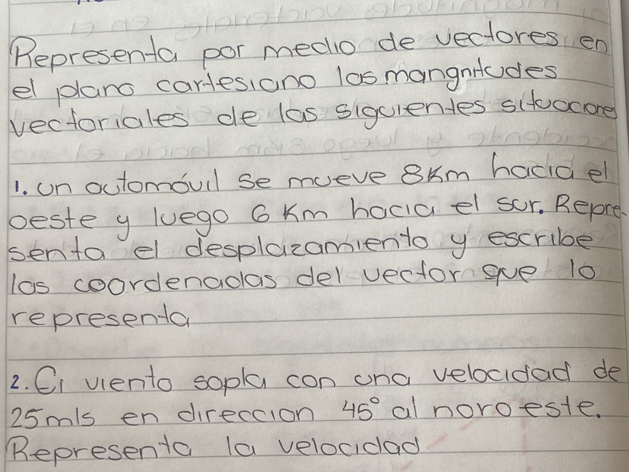 Representa por medio de vectores en
el plano cartesiano las mangnitudes
vectoriales de las siguientes situaciones
1. un automóvil se mueve 8Km hacia el
oeste y luego 6 Km hacia el sur. Repre-
senta el desplazamiento y escribe
las coordenadas del vector que lo
representa
2. El viento sopla con una velocidad de
25m/s en direccion 45° al noroeste.
Representa la velocidad